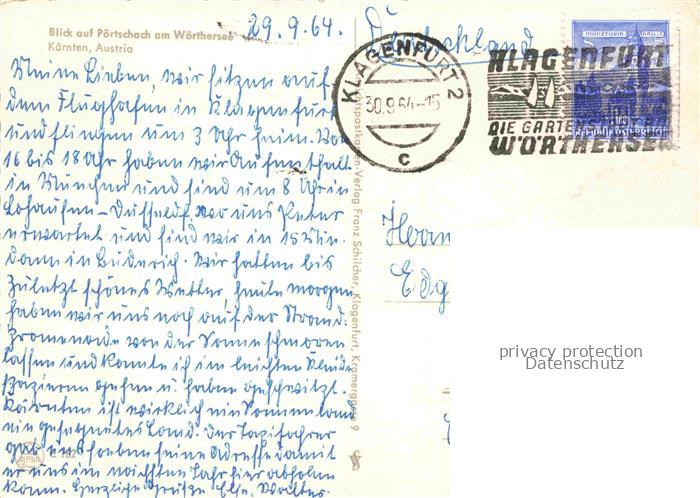 29.9.64.
Deutschland
Blick auf Pörtschach am Wörthersee
Kärnten, Austria
Meine Lieben, wir sitzen auf
dem Flughafen in Klagenfurt
und fliegen um 3 Uhr heim. Von
16 bis 18 Uhr haben wir Aufenthalt
in München und sind um 8 Uhr in
Lohausen – Düsseldf. wo uns Peter
erwartet und sind wir in 15 Min.
dann in Büderich. Wir hatten bis
zuletzt schönes Wetter, heute morgen
haben wir uns noch auf der Strand-
promenade von der Sonne schmoren
lassen und konnte ich im leichten Kleide
spazieren gehen u. haben geschwitzt.
Kärnten ist wirklich ein Sonnenland
ein gesegnetes Land. Der Taxifahrer
gab uns soeben seine Adresse damit
er uns im nächsten Jahr hier abholen
kann. Herzliche Grüsse Else, Walter.
KLAGENFURT 2
30.9.64-15
c
KLAGENFURT
DIE GARTENSTADT AM
WÖRTHERSEE
MÜNZTURM HALL
REPUBLIK ÖSTERREICH
Lichtbildpostkarten-Verlag Franz Schilcher, Klagenfurt, Kramergasse 9
Herrn
Edg
privacy protection
Datenschutz